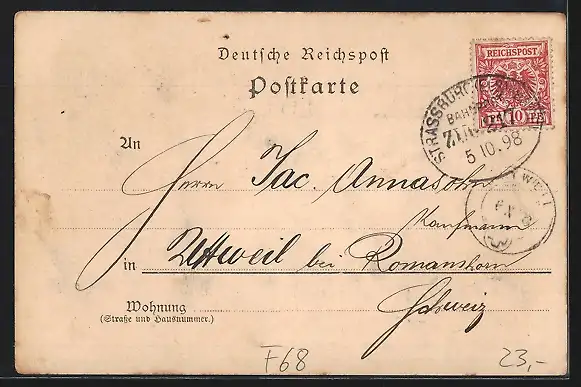 Deutsche Reichspost
Postkarte
REICHSPOST
10
STRASSBURG
BAHNPOST
ZUG
5 10.98
An
Herrn Jac. Annasohn
Kaufmann
in Uttweil bei Romanshorn
Schweiz
Wohnung
(Straße und Hausnummer.)
F68
23,-